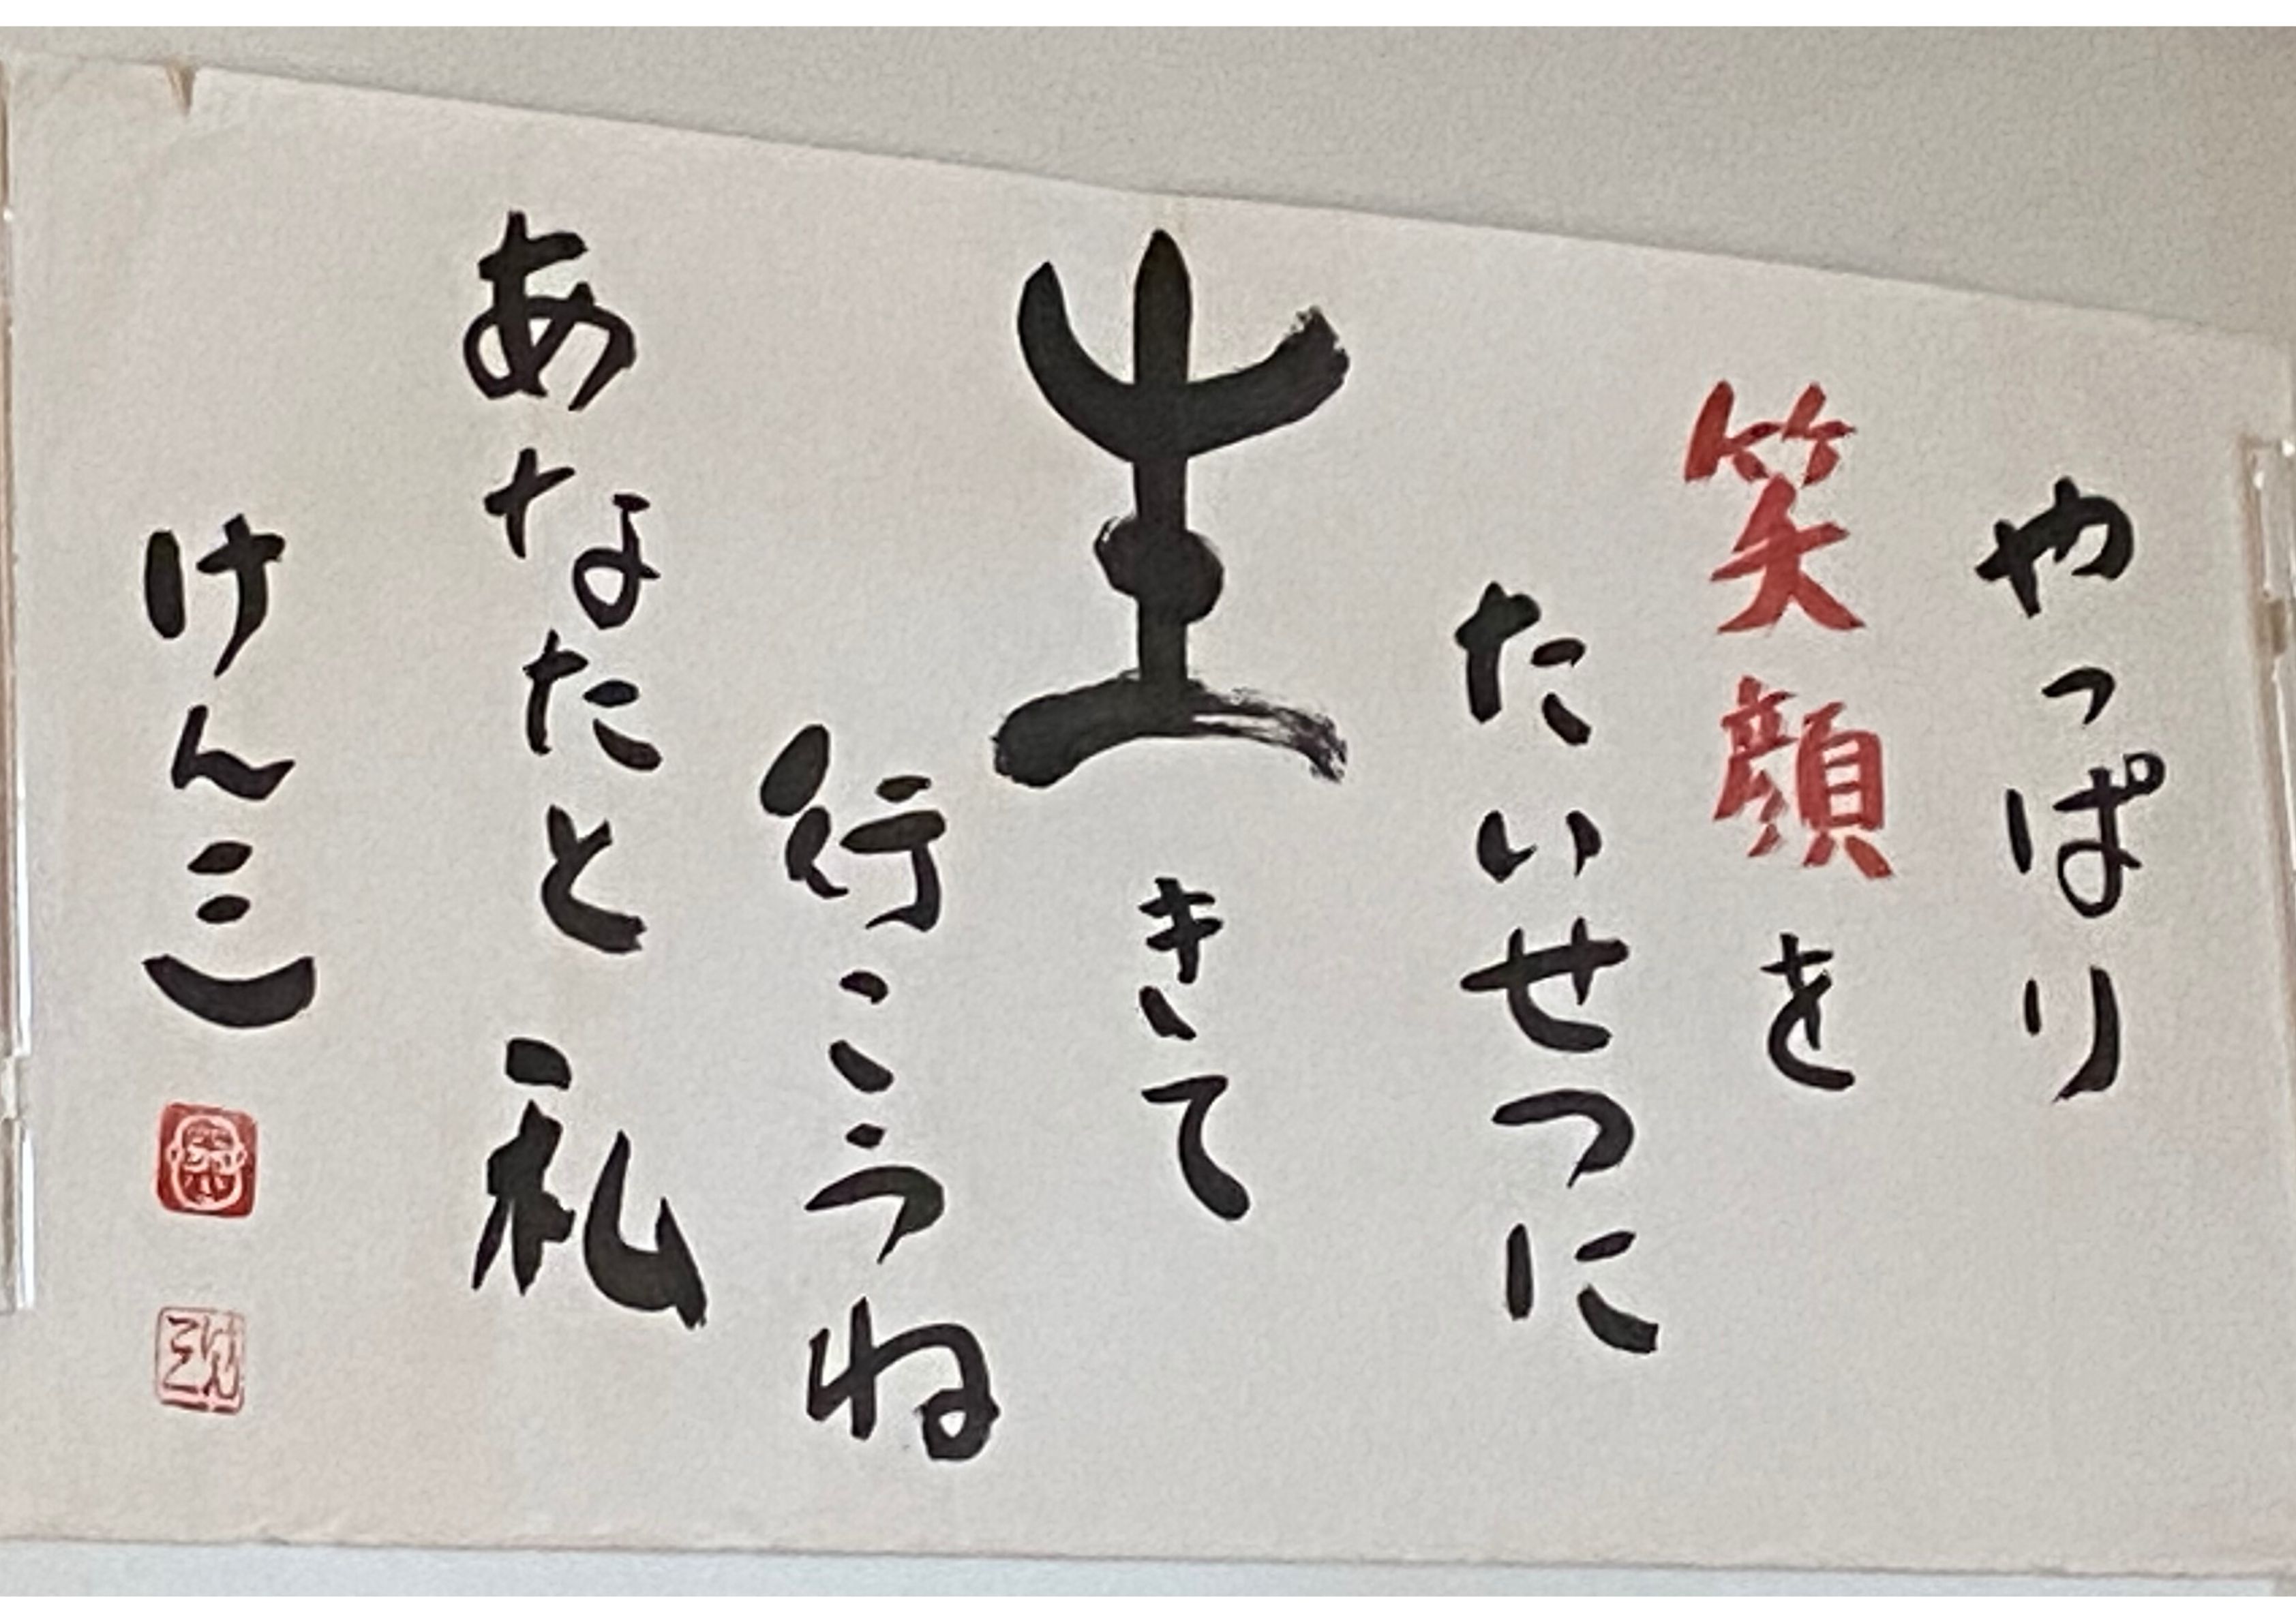 やっぱり
笑顔を
たいせつに
生きて
行こうね
あなたと私
けん三